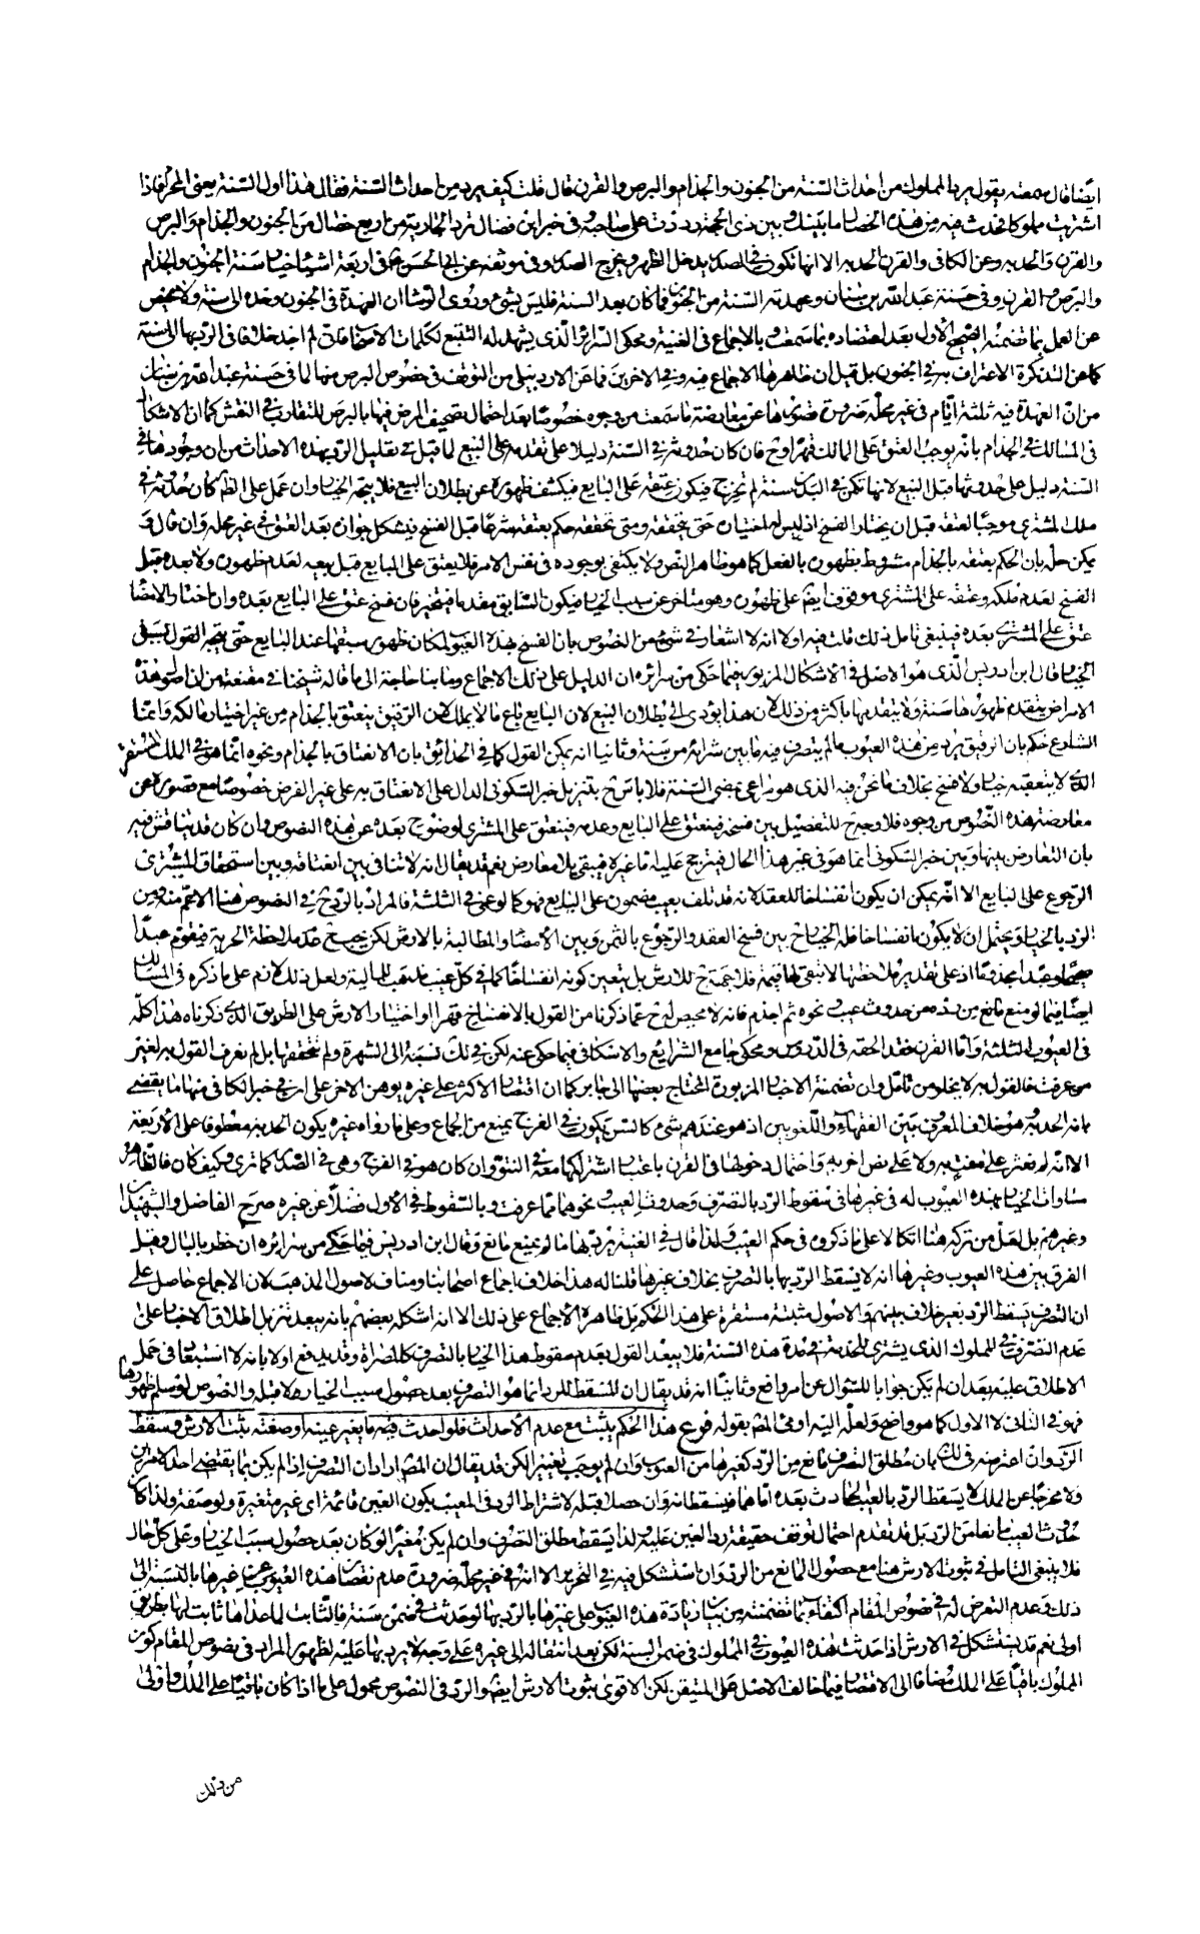 ايضا قال سمعته يقول يرد المملوك من احداث السنة من الجنون والجذام والبرص والقرن قال قلت كيف يرد من احداث السنة فقال هذا اول السنة يعنى المحرم فاذا
اشتريت مملوكا فحدث فيه من هذه الخصال ما بينك وبين ذى الحجة رددت على صاحبه وفى خبر ابن فضال ترد الجارية من اربع خصال من الجنون والجذام والبرص
والقرن والحدبه وعن الكافى والقرن الحدبه الا انها تكون فى الصدر يدخل الظهر ويخرج الصدر وفى موثقه عن ابى الحسن فى اربعة اشياء خيار سنة الجنون والجذام
والبرص والقرن وفى حسنة عبد الله بن سنان وعهدته السنة من الجنون فما كان بعد السنة فليس بشئ وروى الوشا ان العهدة فى الجنون وحده الى سنة ولا محيص
عن العمل بما تضمنه الصحيح الاول بعد اعتضاده بما سمعت وبالاجماع فى الغنية ومحكى السرائر الذى يشهد له التتبع لكلمات الاصحاب فانى لم اجد خلافا فى الرد بها الى سنة
كما عن التذكرة الاعتراف به فى الجنون بل قيل ان ظاهرها الاجماع فيه وفى الاخرين فما عن الاردبيلى من التوقف فى خصوص البرص منها لما فى حسنة عبد الله بن سنان
من ان العهدة فيه ثلثة ايام فى غير محله ضرورة قصورها عن معارضة ما سمعت من وجوه خصوصا بعد احتمال تصحيف المرض فيها بالبرص للتقارب فى النقش كما ان الاشكال
فى المسالك فى الجذام بانه يوجب العتق على المالك قهرا وح فان كان حدوثه فى السنة دليلا على تقدمه على البيع لما قيل فى تعليل الرد بهذه الاحداث من ان وجودها فى
السنة دليل على حدوثها قبل البيع لانها تكمن فى البدن سنة ثم تخرج فيكون عتقه على البايع فيكشف ظهوره عن بطلان البيع فلا يتجه الخيار وان عمل على الظاهر كان حدوثه فى
ملك المشترى موجبا لعتقه قبل ان يختار الفسخ اذ ليس له اختيار حتى يتحققه ومتى تحققه حكم بعتقه شرعا قبل الفسخ فيشكل جوازه بعد العتق فى غير محله وان قال و
يمكن حله بان الحكم بعتقه بالجذام مشروط بظهوره بالفعل كما هو ظاهر النص ولا يكتفى بوجوده فى نفس الامر فلا يعتق على البايع قبل بيعه لعدم ظهوره ولا بعده قبل
الفسخ لعدم ملكه وعتقه على المشترى موقوف ايضا على ظهوره وهو متاخر عن سبب الخيار فيكون السابق مقدما فيتخير فان فسخ عتق على البايع بعده وان اختار الامضا
عتق على المشترى بعده فينبغى تامل ذلك قلت فيه اولا انه لا اشعار فى شئ من النصوص بان الفسخ بهذه العيوب لمكان ظهور سبقها عند البايع حتى يتجه القول بسبق
الخيار قال ابن ادريس الذى هو الاصل فى الاشكال المزبور فيما حكى من سرائره ان الدليل على ذلك الاجماع وما بنا حاجة الى ما قاله شيخنا فى مقنعته من ان اصول هذه
الامراض يتقدم ظهورها سنة ولا يتقدمها باكثر من ذلك لان هذا يؤدى الى بطلان البيع لان البايع باع ما لا يملك لان الرقيق ينعتق بالجذام من غير اختيار مالكه وانما
الشارع حكم بان الرقيق يرد من هذه العيوب ما لم يتصرف فيه ما بين شرائه من سنة وثانيا انه يمكن القول كما فى الحدائق بان الانعتاق بالجذام ونحوه انما هو فى الملك المستقر
الذى لا يتعقبه خيار ولا فسخ بخلاف ما نحن فيه الذى هو مراعى بمضى السنة فلا باس ح بتنزيل خبر السكونى الدال على الانعتاق به على غير الفرض خصوصا مع قصوره عن
معارضة هذه النصوص من وجوه فلا وجه ح للتفصيل بين فسخه فينعتق على البايع وعدمه فينعتق على المشترى لوضوح بعده عن هذه النصوص وان كان قد يناقش فيه
بان التعارض بينها وبين خبر السكونى انما هو فى غير هذا الحال فيترجح عليه اما غيره فيبقى بلا معارض نعم قد يقال انه لا تنافى بين انعتاقه وبين استحقاق المشترى
الرجوع على البايع الا انه يمكن ان يكون انفساخا للعقد لانه قد تلف بعيب مضمون على البايع فهو كما لو عمى فى الثلثة فالمراد بالرد ح فى النصوص هنا الاعم منه ومن
الرد بالخيار ويحتمل ان لا يكون انفساخا فله الخيار ح بين فسخ العقد والرجوع بالثمن وبين الامضاء والمطالبة بالارش لكن يجب ح عدم ملاحظة الحرية فيقوم عبدا
صحيحا وعبدا مجذوما اذ على تقدير ملاحظتها لا تبقى لها قيمة فلا يتجه ح للارش بل يتعين كونه انفساخا كما فى كل عيب مذهب للمالية ولعل ذلك لازم على ما ذكره فى المسالك
ايضا فيما لو منع مانع من رده من حدوث عيب ونحوه ثم اجذم فانه لا محيص له ح عما ذكرنا من القول بالانفساخ قهرا او اختيار الارش على الطريق الذى ذكرناه هذا كله
فى العيوب الثلثة واما القرن فقد الحقه فى الدروس ومحكى جامع الشرايع والاسكافى فيما حكى عنه لكن فى لك نسبته الى الشهرة ولم نتحققها بل لم نعرف القول به لغير
من عرفت فالقول به لا يخلو من تامل وان تضمنته الاخبار المزبورة المحتاج بعضها الى جابر كما ان اقتصار الاكثر على غيره يوهن الاخر على ان فى خبر الكافى منها ما يقضى
بانه الحدبة وهو خلاف المعروف بين الفقهاء واللغويين اذ هو عندهم شئ كالسن يكون فى الفرج يمنع من الجماع وعلى ما رواه غيره يكون الحدبة معطوفا على الاربعة
الا انه لم نعثر على مفت به ولا على نص اخر به واحتمال دخولها فى القرن باعتبار اشتراكها معه فى النتو وان كان هو فى الفرج وهى فى الصدر كما ترى وكيف كان فالظاهر
مساواة الخيار بهذه العيوب له فى غيرها فى سقوط الرد بالتصرف وحدوث العيب ونحوهما مما عرفت وبالسقوط فى الاول فضلا عن غيره صرح الفاضل والشهيدان
وغيرهم بل لعل من تركه هنا اتكالا على ما ذكروه فى حكم العيب ولذا قال فى الغنية يرد بها ما لم يمنع مانع وقال ابن ادريس فيما حكى من سرائره ان خطر بالبال وقيل
الفرق بين هذه العيوب وغيرها انه لا يسقط الرد بها بالتصرف بخلاف غيرها قلنا له هذا خلاف اجماع اصحابنا ومناف لاصول المذهب لان الاجماع حاصل على
ان التصرف يسقط الرد بغير خلاف بينهم والاصول مثبتة مستقرة على هذا الحكم بل ظاهره الاجماع على ذلك الا انه اشكله بعضهم بانه يبعد تنزيل اطلاق الاخبار على
عدم التصرف فى المملوك الذى يشترى للخدمة فى مدة هذه السنة فلا يبعد القول بعدم سقوط هذا الخيار بالتصرف كالمصراة وقد يدفع اولا بانه لا استبعاد فى حمل
الاطلاق عليه بعد ان لم يكن جوابا للسؤال عن امر واقع وثانيا انه قد يقال ان المسقط للرد انما هو التصرف بعد حصول سبب الخيار لا قبله والنصوص لو سلم ظهورها
فهو فى الثانى لا الاول كما هو واضح ولعل اليه اومى المص بقوله فروع هذا الحكم يثبت مع عدم الاحداث فلو احدث فيه ما يغير عينه او صفته ثبت الارش وسقط
الرد وان اعترضه فى لك بان مطلق التصرف مانع من الرد كغيرها من العيوب وان لم يوجب تغييرا لكن قد يقال ان المص اراد ان التصرف اذا لم يكن مما يقتضى احد الامرين
ولا مخرجا عن الملك لا يسقط الرد بالعيب الحادث بعده اما هما فيسقطانه وان حصلا قبله لاشتراط الرد فى المعيب بكون العين قائمة اى غير متغيرة ولو صفة ولذا كان
حدوث العيب مانعا من الرد بل قد تقدم احتمال توقف حقيقة رد العين عليه ولذا يسقط مطلق التصرف وان لم يكن مغيرا لو كان بعد حصول سبب الخيار وعلى كل حال
فلا ينبغى التامل فى ثبوت الارش هنا مع حصول المانع من الرد وان استشكل فيه فى التحرير الا انه فى غير محله ضرورة عدم نقصان هذه العيوب عن غيرها بالنسبة الى
ذلك وعدم التعرض له فى نصوص المقام اكتفاء بما تضمنته من بيان زيادة هذه العيوب على غيرها بالرد بها لو حدثت فى ضمن سنة فالثابت لما عداها ثابت لها بطريق
اولى نعم قد يستشكل فى الارش اذا حدثت هذه العيوب فى المملوك فى ضمن السنة لكن بعد انتقاله الى غيره على وجه لا يرد بها عليه لظهور المراد فى نصوص المقام كون
المملوك باقيا على الملك مضافا الى الاقتصار فيما خالف الاصل على المتيقن لكن الاقوى ثبوت الارش ايضا والرد فى النصوص محمول على ما اذا كان باقيا على الملك واولى
من ذلك